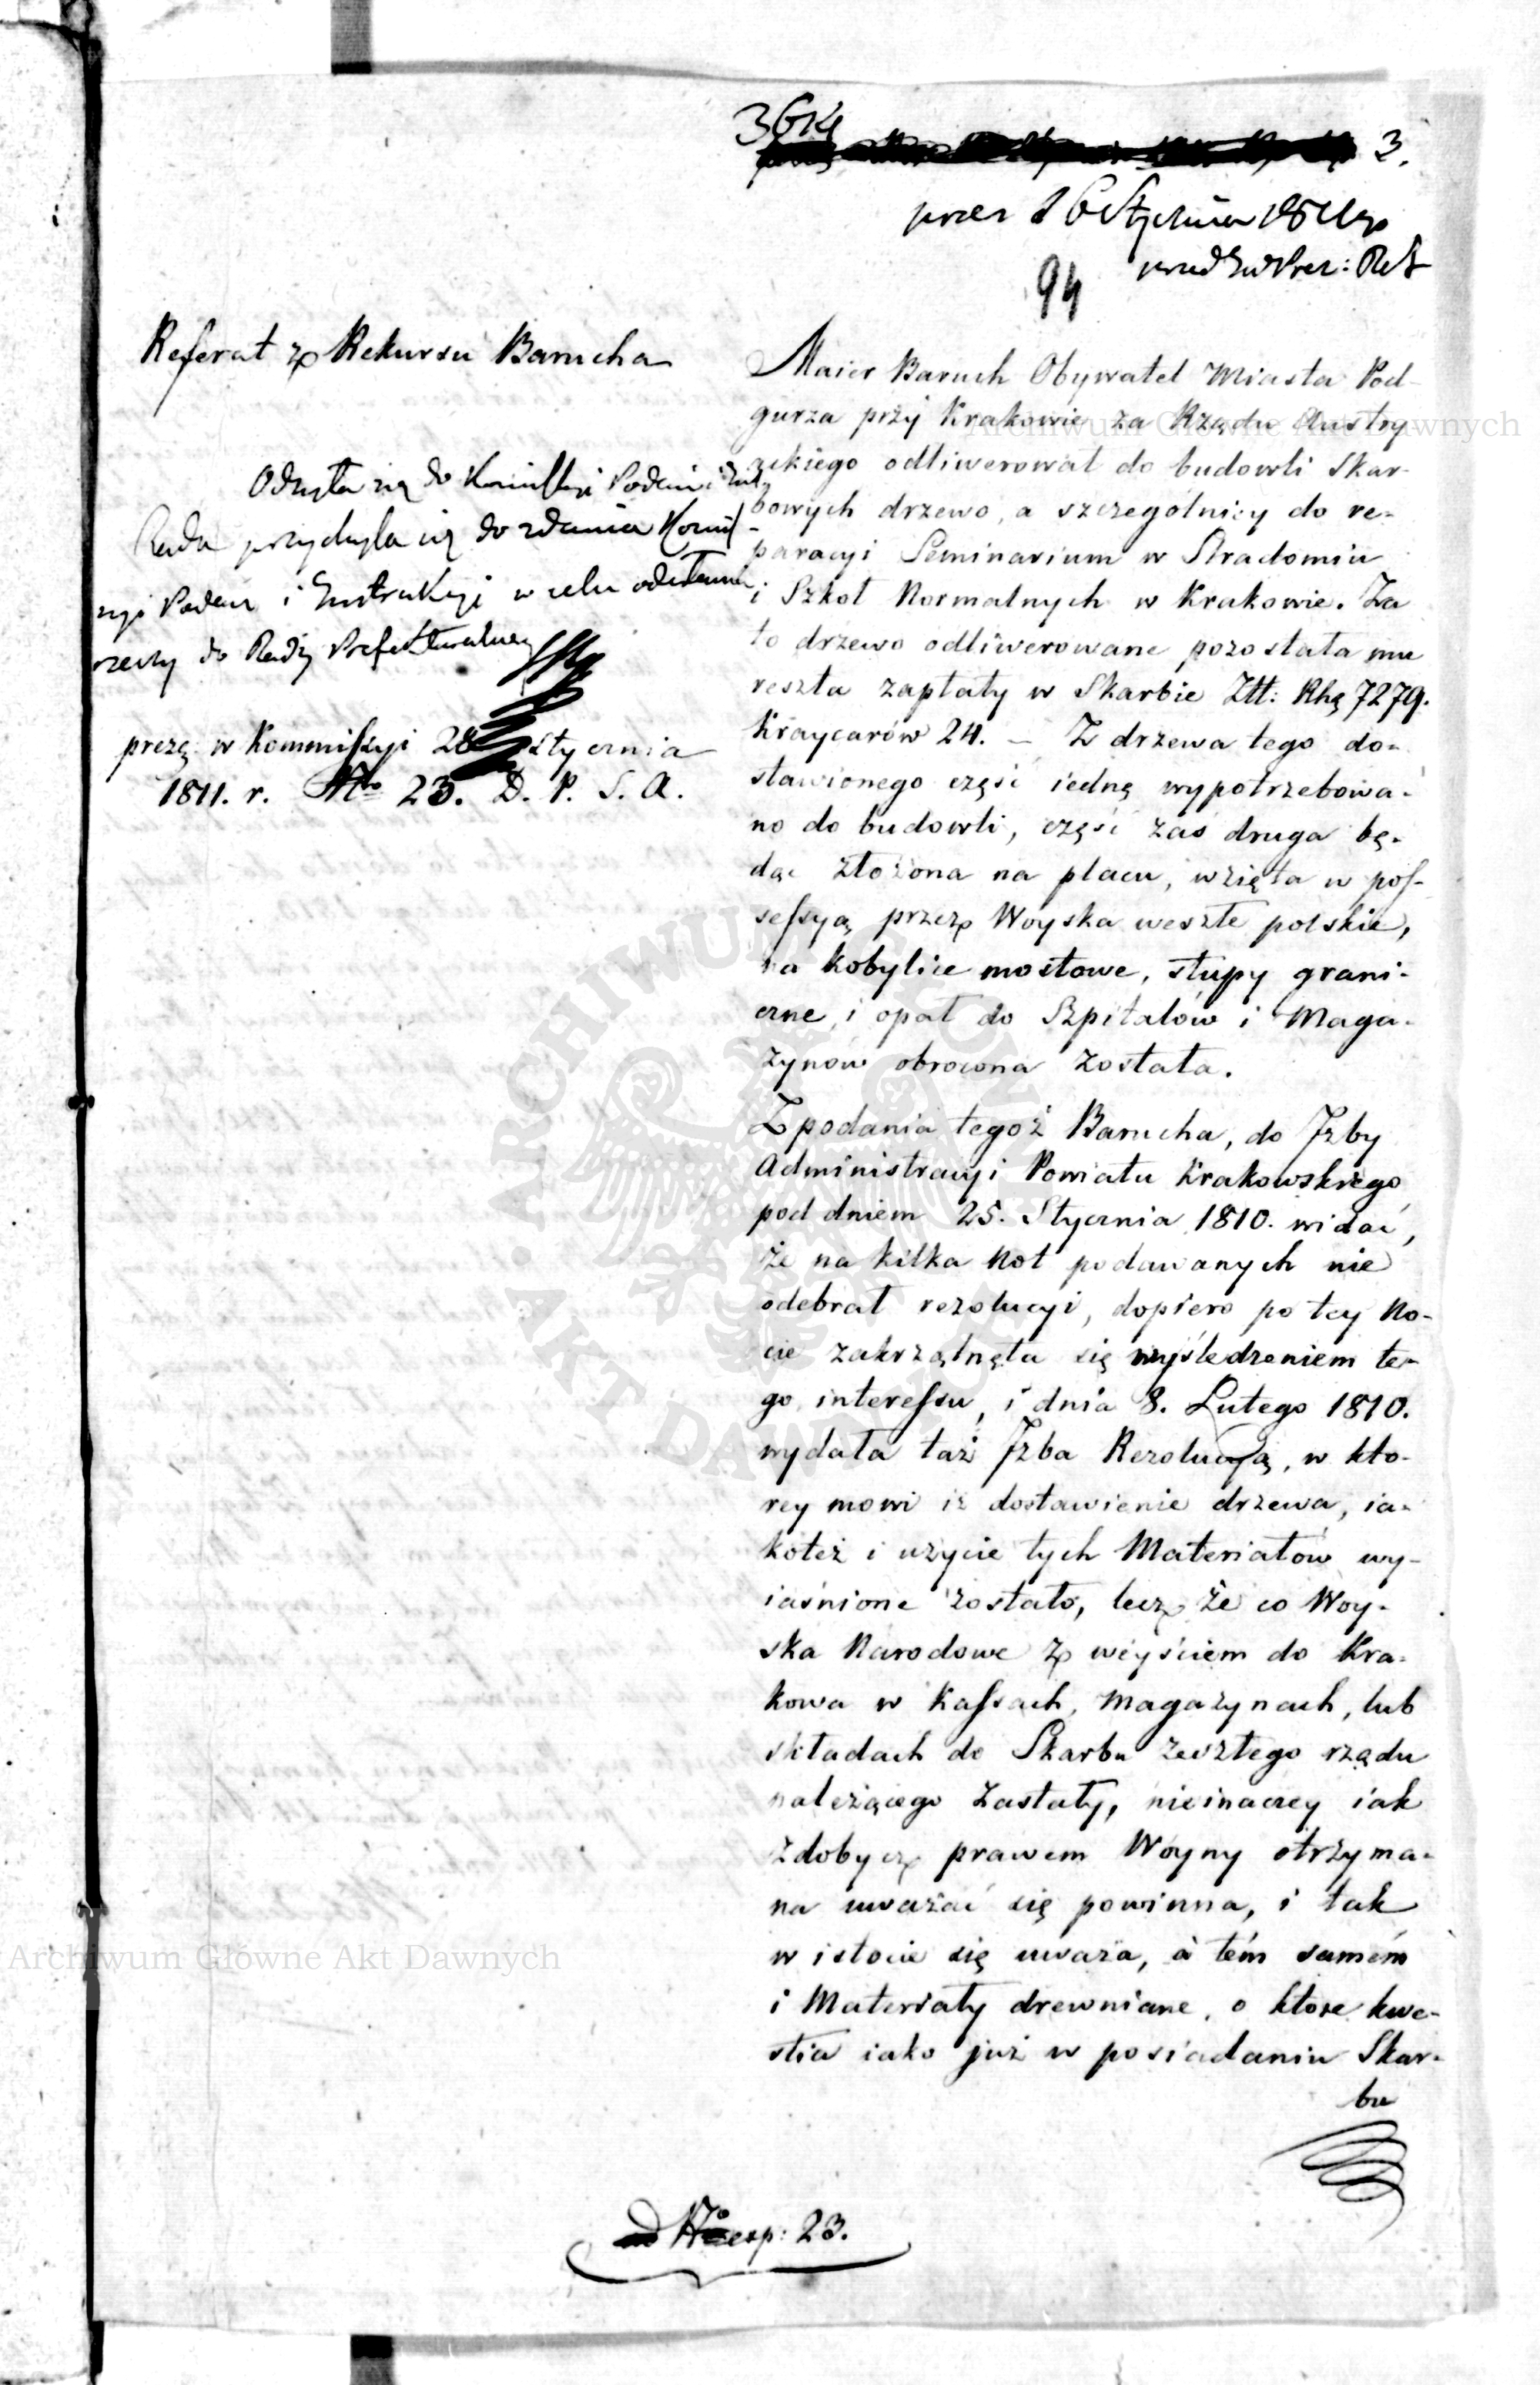 3614
3.
prez 16 Stycznia 1811 r
94
Referat z Rekursu Barucha
Odsyła się do Komissyi Podań i
Rada przychyla się do zdania Komis-
syi Podań i Instrukcyi w celu odesłania
rzeczy do Rady Prefekturalney
prezę. w Kommissyi 28 stycznia
1811. r. Nro 23. D. P. S. A.
Maier Baruch Obywatel Miasta Pod-
gurza przy Krakowie za Rządu Austry-
ackiego odliwerował do budowli Skar-
bowych drzewo, a szczególniey do re-
paracyi Seminarium w Stradomiu
i Szkoł Normalnych w Krakowie. Za
to drzewo odliwerowane pozostała mu
reszta zapłaty w Skarbie Ztt: Rhę 7279.
Kraycarów 24. – Z drzewa tego do-
stawionego część iedną wypotrzebowa-
no do budowli, część zaś druga bę-
dąc złożona na placu, wzięta w pos-
sessyą przez Woyska weszłe polskie,
na kobylice mostowe, słupy grani-
czne, i opał do Szpitalów i Maga-
zynów obrocona została.
Z podania tegoż Barucha, do Izby
Administracyi Powiatu Krakowskiego
pod dniem 25. Stycznia 1810. widać,
że na kilka Not podawanych nie
odebrał rezolucyi, dopiero po tey No-
cie zakrzątnęła się wyśledzeniem te-
go interessu, i dnia 8. Lutego 1810.
wydała taż Izba Rezolucyą, w kto-
rey mowi iż dostawienie drzewa, ia-
koteż i użycie tych Materiałów wy-
iaśnione zostało, lecz że co Woy-
ska Narodowe z weyściem do Kra-
kowa w Kassach, Magazynach, lub
składach do Skarbu zeszłego rządu
należącego zastały, nieinaczey iak
zdobycz prawem Woyny otrzyma-
na uważać się powinna, i tak
w istocie się uważa, a tém samém
i Materiały drewniane, o które kwe-
stia iako już w posiadaniu Skar-
bu
ad Nro exp: 23.
Archiwum Główne Akt Dawnych
Archiwum Główne Akt Dawnych
ARCHIWUM GŁÓWNE AKT DAWNYCH